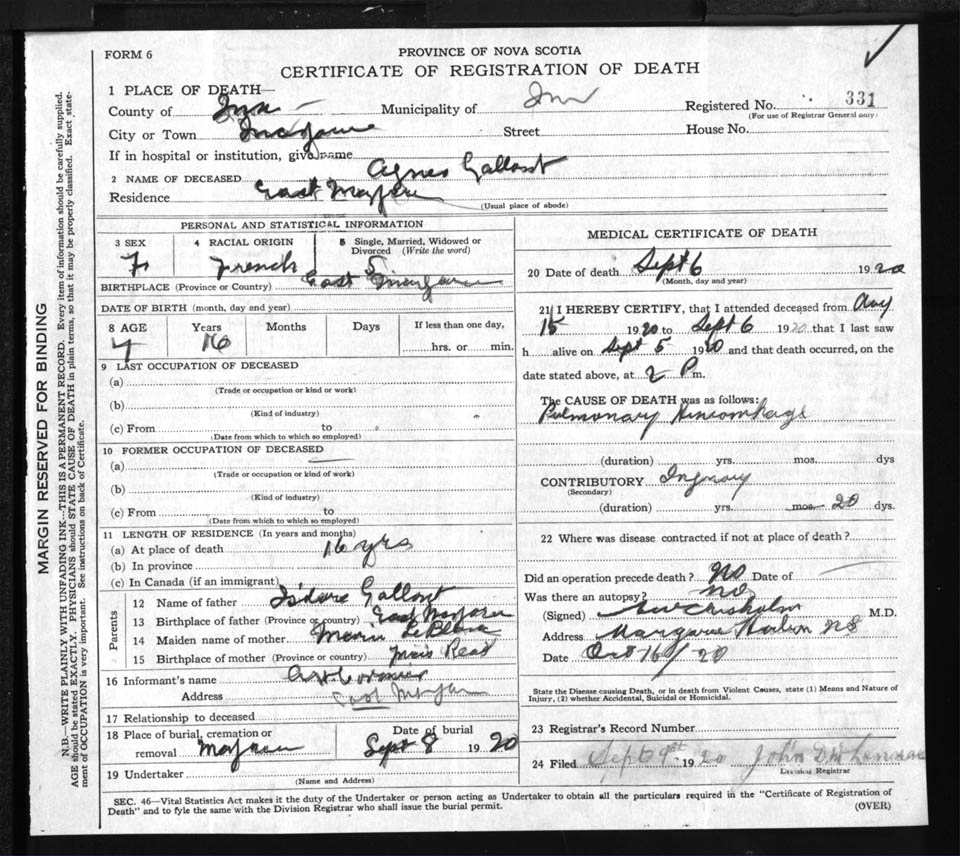 FORM 6
PROVINCE OF NOVA SCOTIA
CERTIFICATE OF REGISTRATION OF DEATH
1 PLACE OF DEATH—
County of Municipality of Inv Registered No. 331
(For use of Registrar General only)
City or Town Street House No.
If in hospital or institution, give name
2 NAME OF DECEASED Agnes Gallant
Residence East Margaree
(Usual place of abode)
PERSONAL AND STATISTICAL INFORMATION
3 SEX 4 RACIAL ORIGIN 5 Single, Married, Widowed or
Divorced (Write the word)
F French S
BIRTHPLACE (Province or Country) East Margaree
DATE OF BIRTH (month, day and year)
8 AGE Years Months Days If less than one day,
16 hrs. or min.
9 LAST OCCUPATION OF DECEASED
(a)
(Trade or occupation or kind or work)
(b)
(Kind of industry)
(c) From to
(Date from which to which so employed)
10 FORMER OCCUPATION OF DECEASED
(a)
(Trade or occupation or kind of work)
(b)
(Kind of industry)
(c) From to
(Date from which to which so employed)
11 LENGTH OF RESIDENCE (In years and months)
(a) At place of death 16 yrs
(b) In province
(c) In Canada (if an immigrant)
Parents
12 Name of father Isidore Gallant
13 Birthplace of father (Province or country) East Margaree
14 Maiden name of mother LeBlanc
15 Birthplace of mother (Province or country)
16 Informant's name Cormier
Address East Margaree
17 Relationship to deceased
18 Place of burial, cremation or Date of burial
removal Margaree Sept 8 1920
19 Undertaker
(Name and Address)
MEDICAL CERTIFICATE OF DEATH
20 Date of death Sept 6 1920
(Month, day and year)
21 I HEREBY CERTIFY, that I attended deceased from Aug
15 1920 to Sept 6 1920 that I last saw
h alive on Sept 5 1920 and that death occurred, on the
date stated above, at 2 P m.
The CAUSE OF DEATH was as follows:
Pulmonary
(duration) yrs. mos. dys
CONTRIBUTORY
(Secondary)
(duration) yrs. mos. 20 dys.
22 Where was disease contracted if not at place of death?
Did an operation precede death? No Date of
Was there an autopsy? No
(Signed) Chisholm M.D.
Address Margaree Harbor NS
Date Oct 16/20
State the Disease causing Death, or in death from Violent Causes, state (1) Means and Nature of
Injury, (2) whether Accidental, Suicidal or Homicidal.
23 Registrar's Record Number
24 Filed Sept 9th 1920 John D
Division Registrar
SEC. 46—Vital Statistics Act makes it the duty of the Undertaker or person acting as Undertaker to obtain all the particulars required in the "Certificate of Registration of
Death" and to fyle the same with the Division Registrar who shall issue the burial permit. (OVER)
MARGIN RESERVED FOR BINDING
N.B.—WRITE PLAINLY WITH UNFADING INK—THIS IS A PERMANENT RECORD. Every item of information should be carefully supplied.
AGE should be stated EXACTLY. PHYSICIANS should STATE CAUSE OF DEATH in plain terms, so that it may be properly classified. Exact state-
ment of OCCUPATION is very important. See instructions on back of Certificate.